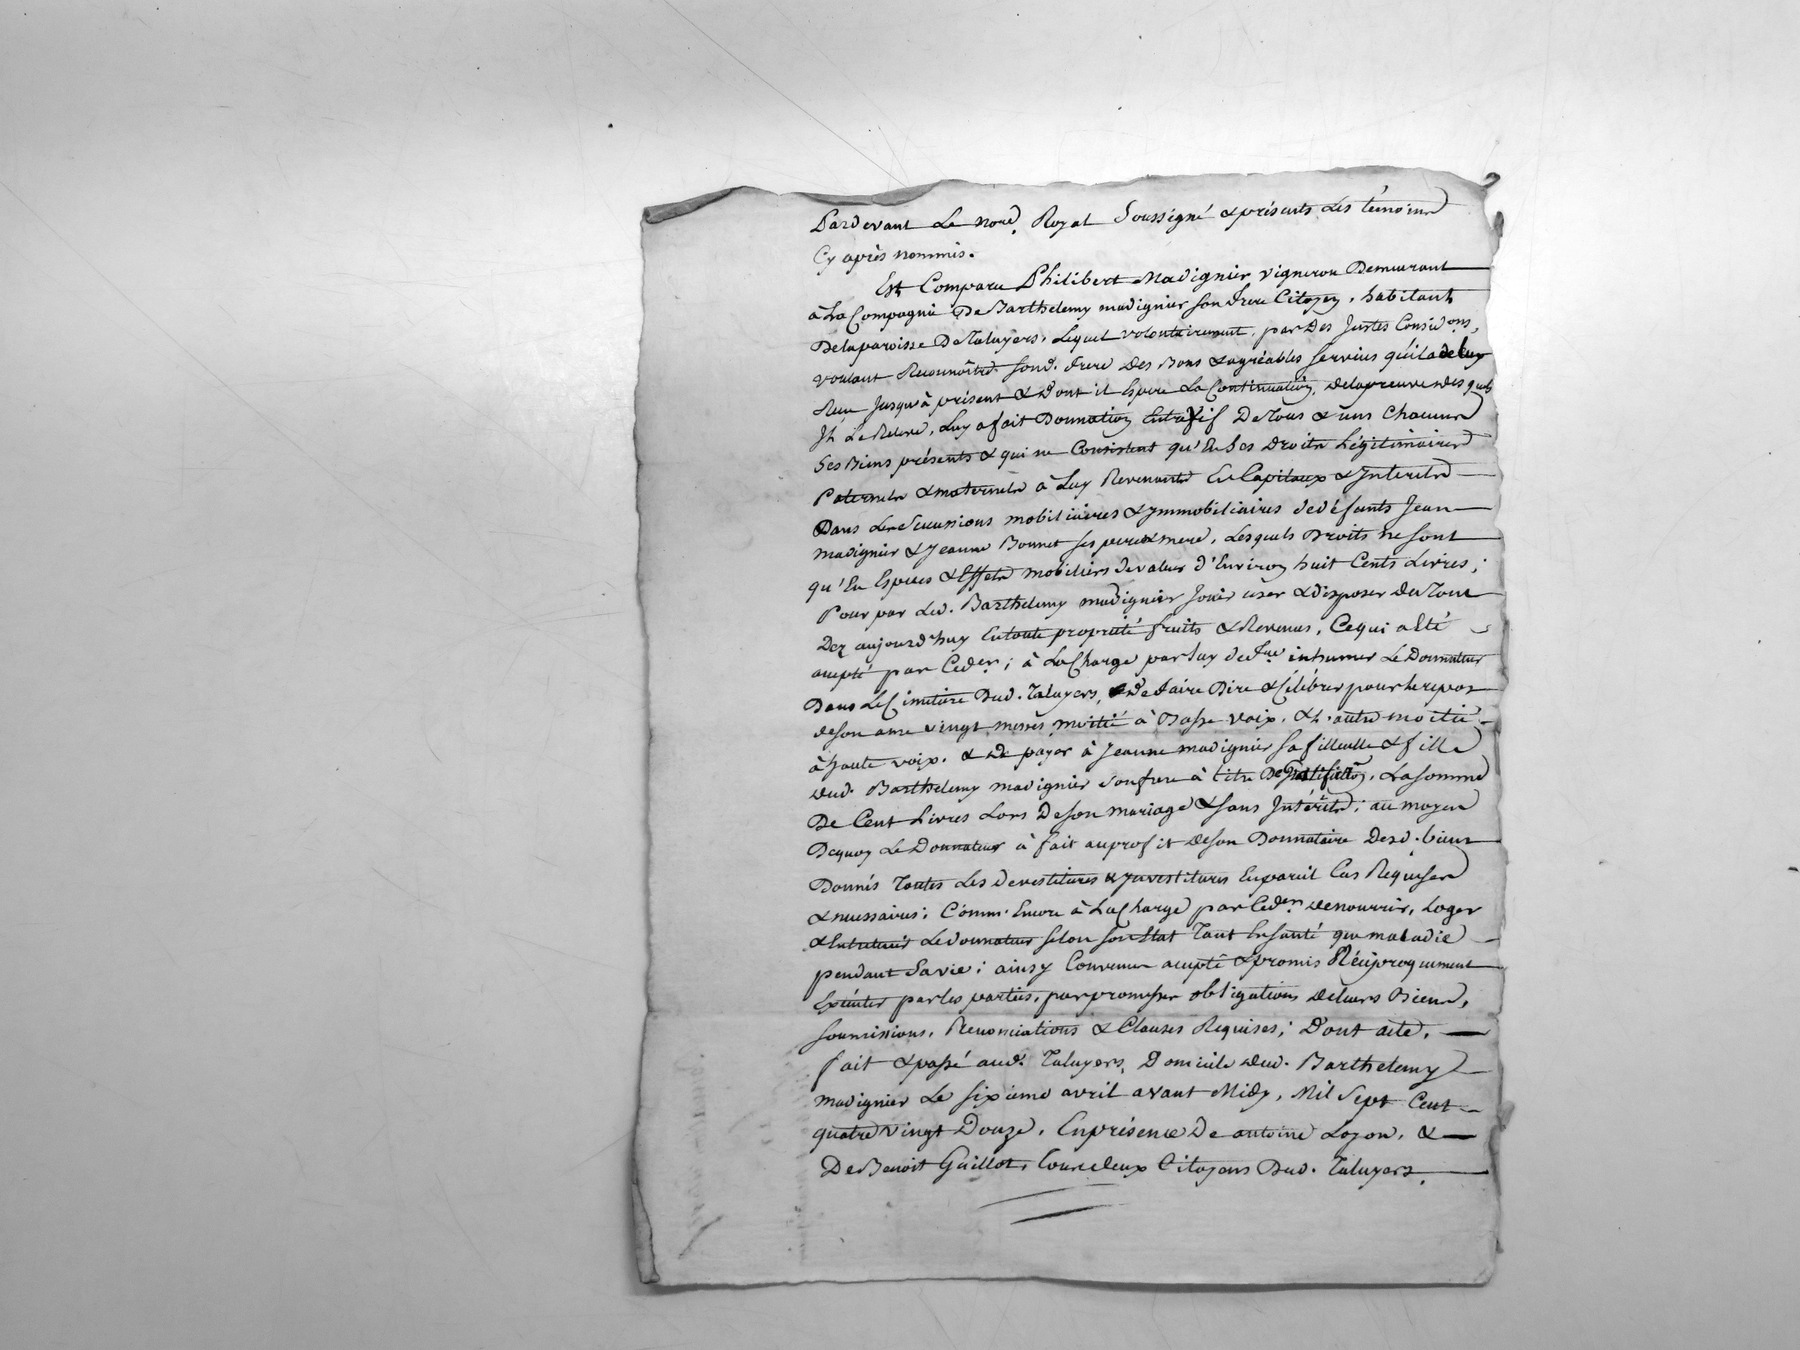 Pardevant Le nore. Royal Soussigné & présents Les témoins
Cy après nommés.
Est Comparu Philibert Madignier vigneron Demeurant
à La Compagnie De Barthelemy madignier son frere Citoyen, habitant
De la paroisse De Taluyers, Lequel volontairement, par Des Justes Considons,
voulant Reconnoître sond. frere Des Bons & agréables services qu'il a de luy
Reçu Jusqu'à présent & Dont il Espere La Continuation, de la preuve des quels
Il Le Releve, Luy a fait Donnation Entrevif De Tous & uns Chacuns
Ses Biens présents & qui ne Consistent qu'En Ses Droits Légitimaires
Paternels & maternels à Luy Revenants En Capitaux & Interets
Dans Les Successions mobiliaires & Immobiliaires de défunts Jean
madignier & Jeanne Bonnet ses pere & mere, Lesquels Droits ne sont
qu'En Espèces & Effets mobiliers de valeur d'Environ huit Cents Livres;
Pour par Led. Barthelemy madignier Jouir user & disposer du Tout
Dez aujourd'huy En toute propriété fruits & Revenus, Ce qui a Eté
accepté par Ceder; à La Charge par luy de fre inhumer Le Donnateur
Dans Le Cimetière Dud. Taluyers, de faire Dire & Célébrer pour le repos
de son ame vingt messes moitié à Basse voix, & L'autre moitié
à haute voix. & de payer à Jeanne madignier sa filleulle & fille
dud. Barthelemy madignier son frere à titre De Gratification, La somme
De Cent Livres Lors De son mariage & sans Intérêts; au moyen
De quoy Le Donnateur à fait au profit de son Donnataire Desd. biens
Donnés Toutes Les devestitures & Investitures En pareil Cas Réquises
& necessaires; Comm. Encore à La Charge par Ceder de nourrir, Loger
& Entretenir Le donnateur selon son Etat Tant En santé que maladie
pendant Sa vie; ainsy Convenu accepté & promis Réciproquement
Exécuter par les parties, par promesses obligations de Leurs Biens,
soumissions, Renonciations & Clauses Requises; D'ont acte,
fait & passé aud. Taluyers, Domicile dud. Barthelemy
madignier Le sixieme avril avant Midy, Mil Sept Cent
quatre vingt Douze, En présence De antoine Lozon, &
De Benoit Guillot, tous deux Citoyens Dud. Taluyers.